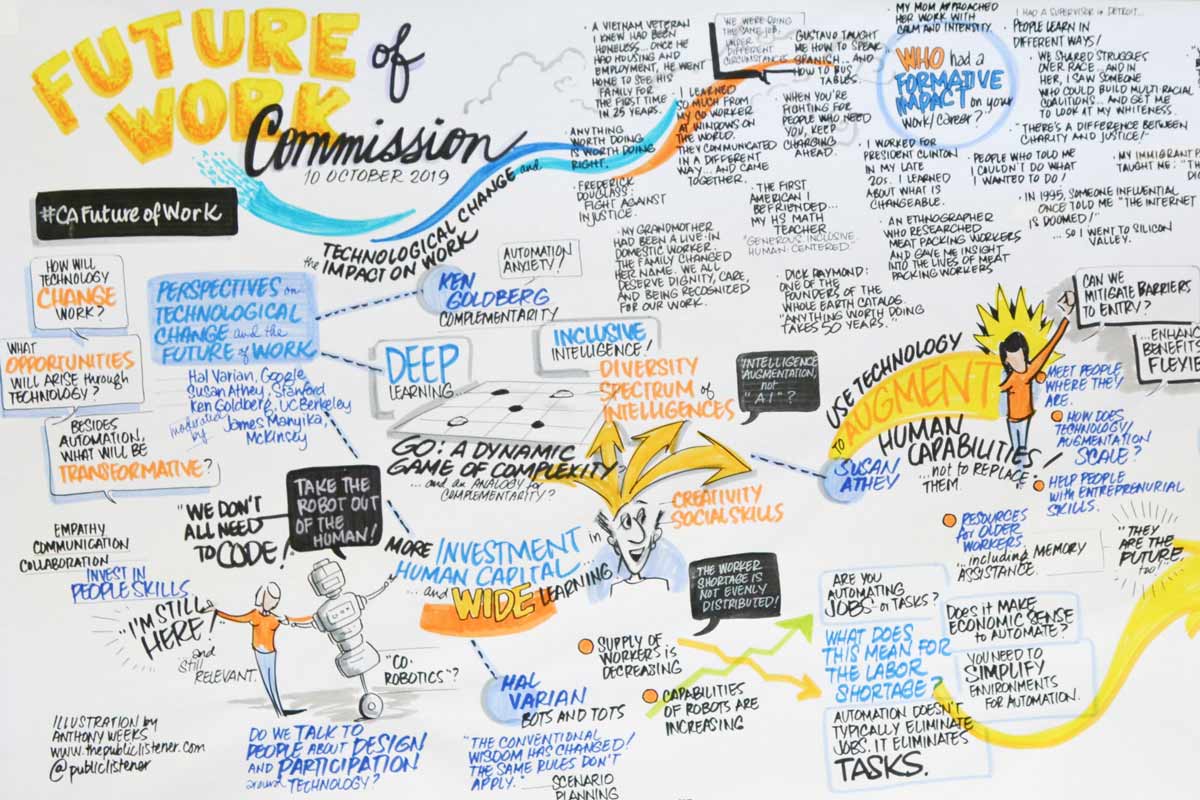 FUTURE of
WORK
Commission
10 OCTOBER 2019
#CAFutureofWork
TECHNOLOGICAL CHANGE and
the IMPACT ON WORK
· A VIETNAM VETERAN
I KNEW HAD BEEN
HOMELESS... ONCE HE
HAD HOUSING AND
EMPLOYMENT, HE WENT
HOME TO SEE HIS
FAMILY FOR
THE FIRST TIME
IN 25 YEARS.
· ANYTHING
WORTH DOING
IS WORTH DOING
RIGHT.
· FREDERICK
DOUGLASS:
FIGHT AGAINST
INJUSTICE.
WE WERE DOING
THE SAME JOB,
UNDER
DIFFERENT
CIRCUMSTANCES
· I LEARNED
SO MUCH FROM
MY CO WORKER
AT WINDOWS ON
THE WORLD.
THEY COMMUNICATED
IN A DIFFERENT
WAY... AND CAME
TOGETHER.
· MY GRANDMOTHER
HAD BEEN A LIVE-IN
DOMESTIC WORKER.
THE FAMILY CHANGED
HER NAME. WE ALL
DESERVE DIGNITY, CARE,
AND BEING RECOGNIZED
FOR OUR WORK.
GUSTAVO TAUGHT
ME HOW TO SPEAK
SPANISH... AND
HOW TO BUS
TABLES.
· WHEN YOU'RE
FIGHTING FOR
PEOPLE WHO NEED
YOU, KEEP
CHARGING
AHEAD.
· THE FIRST
AMERICAN I
BEFRIENDED...
MY HS MATH
TEACHER
"GENEROUS, INCLUSIVE
HUMAN CENTERED"
· DICK RAYMOND:
ONE OF THE
FOUNDERS OF THE
WHOLE EARTH CATALOG.
"ANYTHING WORTH DOING
TAKES 50 YEARS."
· MY MOM APPROACHED
HER WORK WITH
CALM AND INTENSITY.
WHO had a
FORMATIVE
IMPACT on your
WORK/CAREER?
· I WORKED FOR
PRESIDENT CLINTON
IN MY LATE
20s. I LEARNED
ABOUT WHAT IS
CHANGEABLE.
· AN ETHNOGRAPHER
WHO RESEARCHED
MEAT PACKING WORKERS
AND GAVE ME INSIGHT
INTO THE LIVES OF MEAT
PACKING WORKERS
I HAD A SUPERVISOR in DETROIT...
PEOPLE LEARN IN
DIFFERENT WAYS!
· WE SHARED STRUGGLES
OVER RACE... AND IN
HER, I SAW SOMEONE
WHO COULD BUILD MULTI-RACIAL
COALITIONS... AND GET ME
TO LOOK AT MY WHITENESS.
· "THERE'S A DIFFERENCE BETWEEN
CHARITY AND JUSTICE!"
· PEOPLE WHO TOLD ME
I COULDN'T DO WHAT
I WANTED TO DO!
· MY IMMIGRANT P
TAUGHT ME: "TH
· IN 1995, SOMEONE INFLUENTIAL
ONCE TOLD ME "THE INTERNET
IS DOOMED!"
...SO I WENT TO SILICON
VALLEY.
HOW WILL
TECHNOLOGY
CHANGE
WORK?
WHAT
OPPORTUNITIES
WILL ARISE through
TECHNOLOGY?
BESIDES
AUTOMATION,
WHAT WILL BE
TRANSFORMATIVE?
PERSPECTIVES on
TECHNOLOGICAL
CHANGE and the
FUTURE of WORK
Hal Varian, Google
Susan Athey, Stanford
Ken Goldberg, UC Berkeley
moderated by James Manyika,
McKinsey
AUTOMATION
ANXIETY!
KEN
GOLDBERG
COMPLEMENTARITY
DEEP
LEARNING...
INCLUSIVE
INTELLIGENCE!
DIVERSITY
SPECTRUM of
INTELLIGENCES
"INTELLIGENCE
AUGMENTATION,
not
"AI"?
GO: A DYNAMIC
GAME OF COMPLEXITY
...and an ANALOGY for
COMPLEMENTARITY?
CREATIVITY
SOCIAL SKILLS
USE TECHNOLOGY
TO AUGMENT
HUMAN
CAPABILITIES!
...not to REPLACE
THEM.
SUSAN
ATHEY
CAN WE
MITIGATE BARRIERS
TO ENTRY?
...ENHANC
BENEFITS
FLEXIB
MEET PEOPLE
WHERE THEY
ARE.
HOW DOES
TECHNOLOGY/
AUGMENTATION
SCALE?
HELP PEOPLE
with ENTREPRENURIAL
SKILLS.
RESOURCES
for OLDER
WORKERS
...including MEMORY
ASSISTANCE.
"THEY
ARE THE
FUTURE,
too!"
"WE DON'T
ALL NEED
TO CODE!
TAKE THE
ROBOT OUT
OF THE
HUMAN!
EMPATHY
COMMUNICATION
COLLABORATION
INVEST IN
PEOPLE SKILLS
"I'M STILL
HERE!"
and
still
RELEVANT.
"CO-
ROBOTICS"?
MORE INVESTMENT in
HUMAN CAPITAL...
...and WIDE LEARNING
THE WORKER
SHORTAGE IS
NOT EVENLY
DISTRIBUTED!
SUPPLY OF
WORKERS IS
DECREASING
CAPABILITIES
OF ROBOTS ARE
INCREASING
ARE YOU
AUTOMATING
JOBS or TASKS?
WHAT DOES
THIS MEAN FOR
THE LABOR
SHORTAGE?
AUTOMATION DOESN'T
TYPICALLY ELIMINATE
JOBS. IT ELIMINATES
TASKS.
DOES IT MAKE
ECONOMIC SENSE
TO AUTOMATE?
YOU NEED TO
SIMPLIFY
ENVIRONMENTS
FOR AUTOMATION.
HAL
VARIAN
BOTS AND TOTS
"THE CONVENTIONAL
WISDOM HAS CHANGED!
THE SAME RULES DON'T
APPLY."
SCENARIO
PLANNING
DO WE TALK TO
PEOPLE ABOUT DESIGN
AND PARTICIPATION
around TECHNOLOGY?
ILLUSTRATION by
ANTHONY WEEKS
www.thepubliclistener.com
@publiclistener